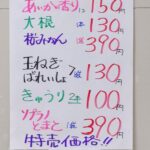 あいかの香り 150円
大根 1本 130円
桜みかん 390円
玉ねぎ
ばれいしょ 1袋 130円
きゅうり 2本 100円
ソプラノ
とまと 1袋 390円
特売価格!!